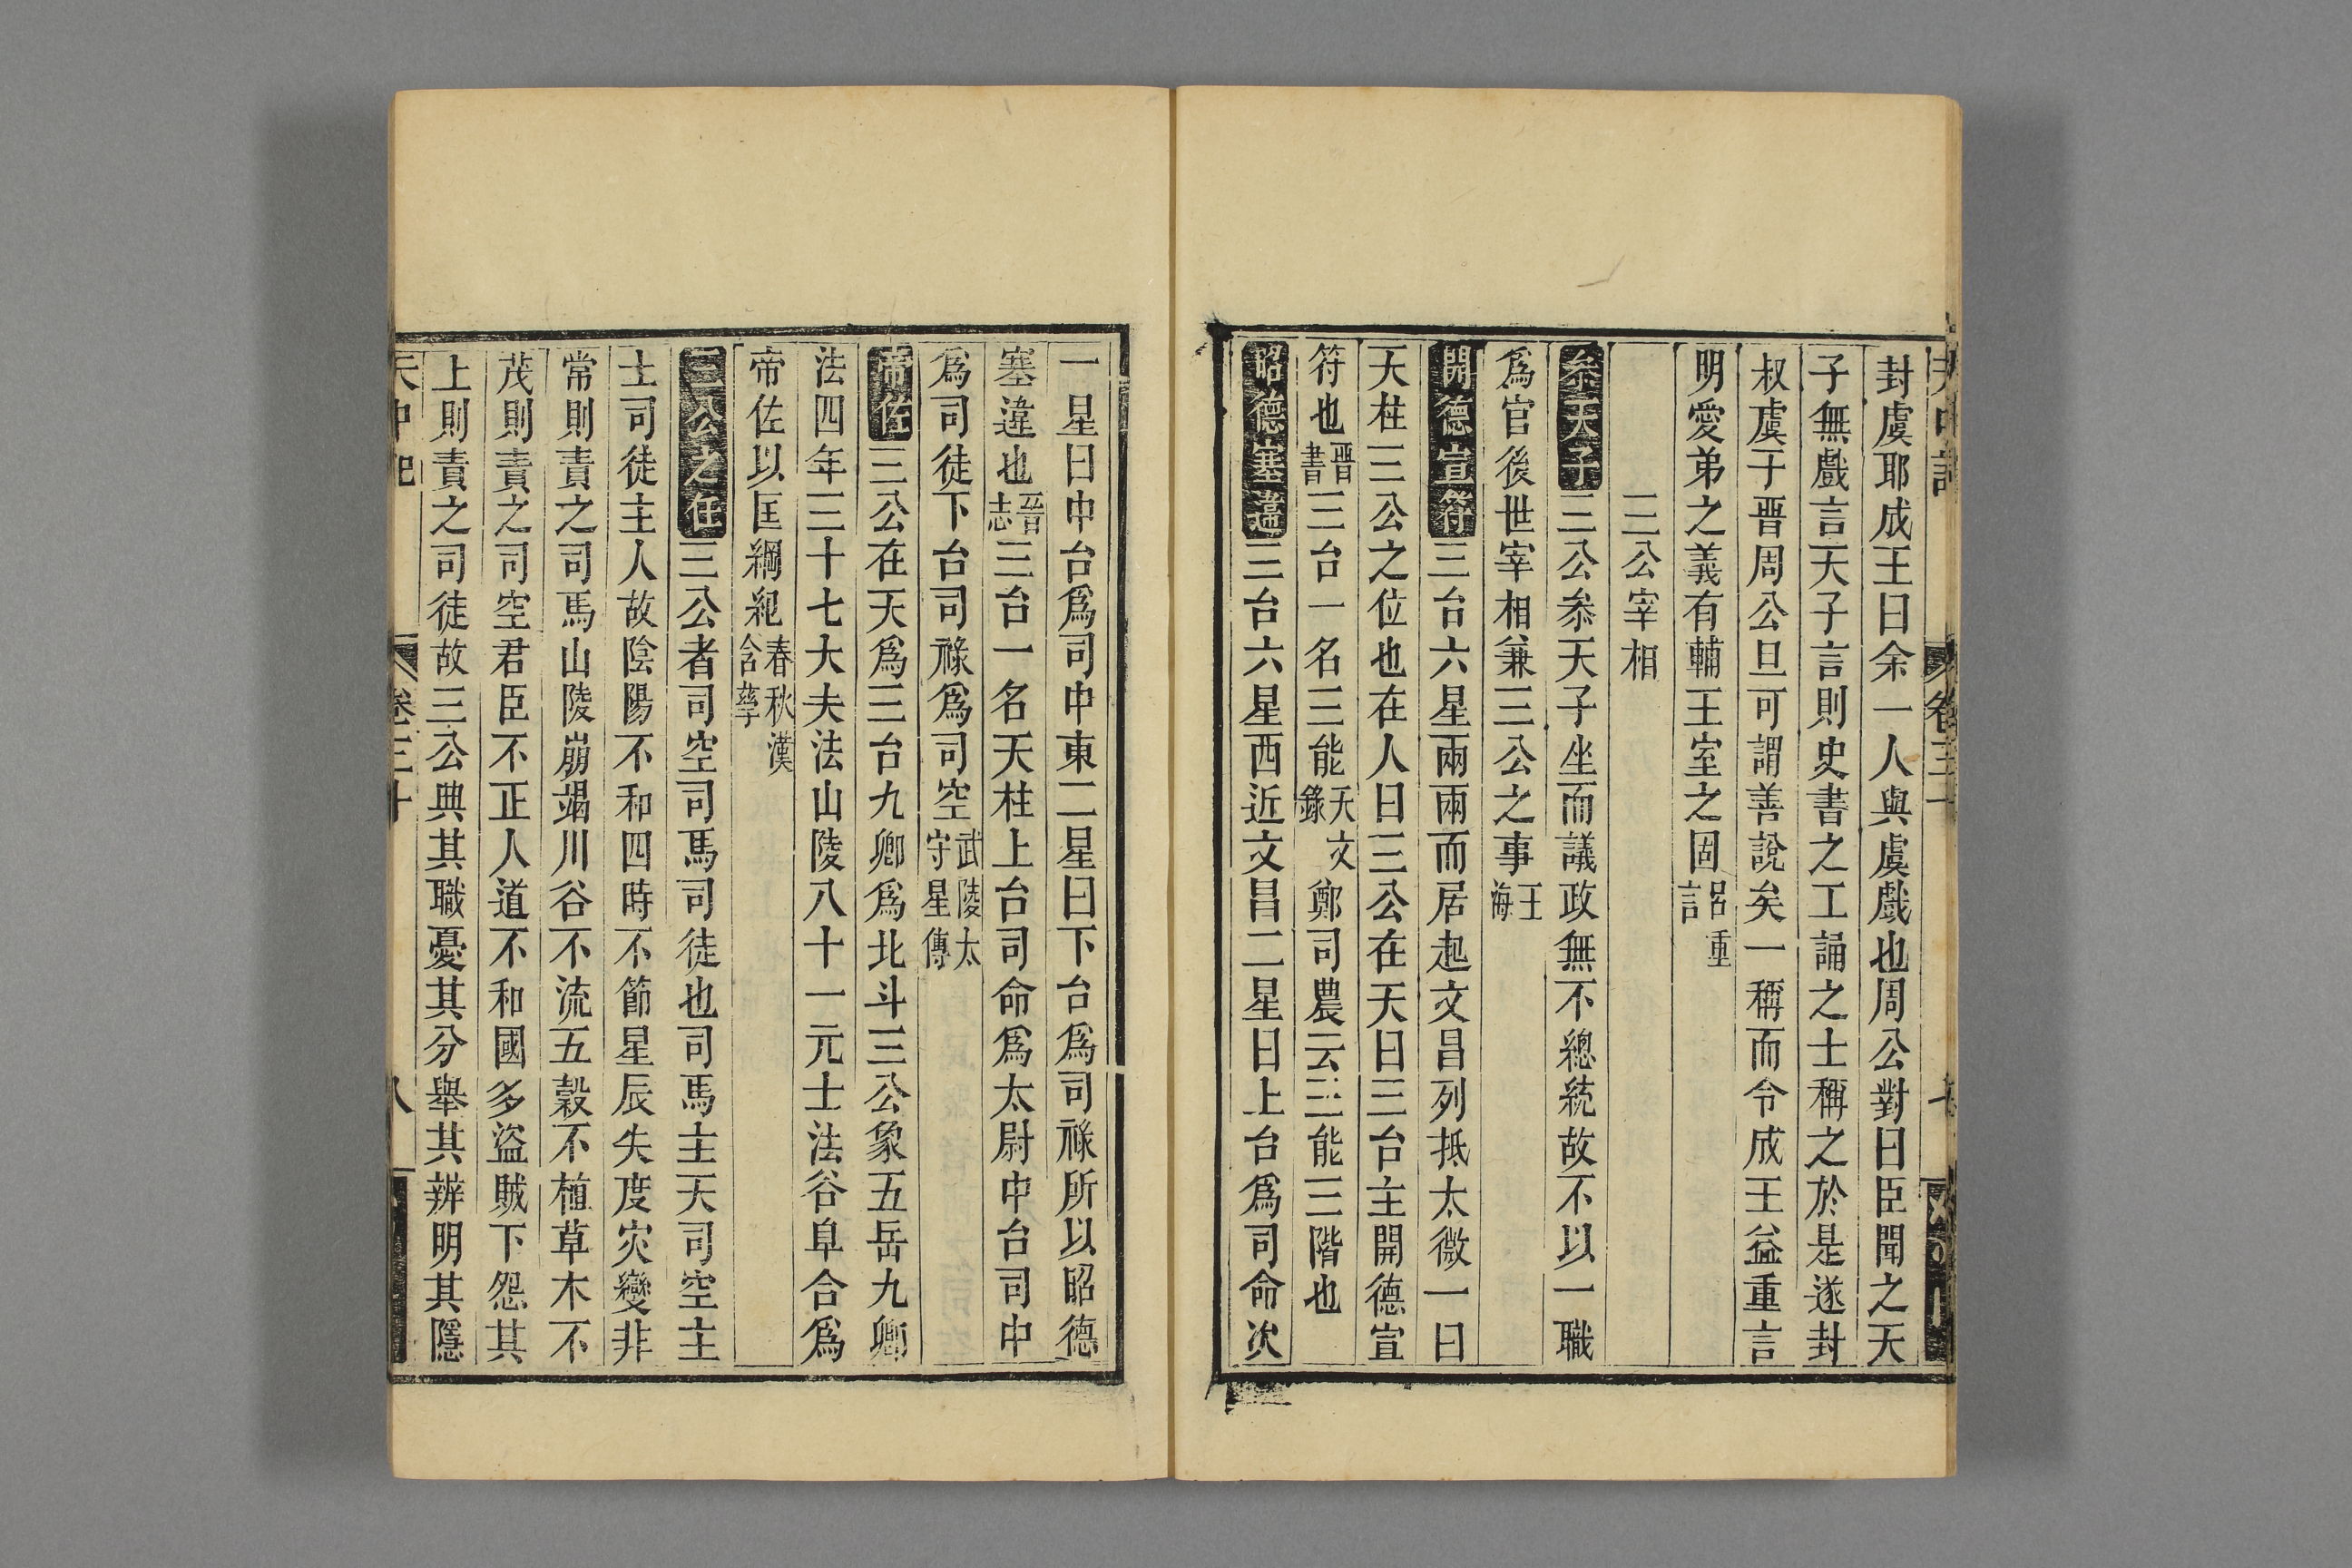 封虞耶成王曰余一人與虞戲也周公對曰臣聞之天
子無戲言天子言則史書之工誦之士稱之於是遂封
叔虞于晉周公旦可謂善說矣一稱而令成王益重言
明愛弟之義有輔王室之固呂重言
三公宰相
叅天子三公叅天子坐而議政無不總統故不以一職
爲官後世宰相兼三公之事王海
開德宣符三台六星兩兩而居起文昌列抵太微一曰
天柱三公之位也在人曰三公在天曰三台主開德宣
符也晉書三台一名三能天文錄鄭司農云三能三階也
昭德塞違三台六星西近文昌二星曰上台爲司命次
一星曰中台爲司中東二星曰下台爲司祿所以昭德
塞違也晉志三台一名天柱上台司命爲太尉中台司中
爲司徒下台司祿爲司空武陵太守星傳
帝佐三公在天爲三台九卿爲北斗三公象五岳九卿
法四年三十七大夫法山陵八十一元士法谷阜合爲
帝佐以匡綱紀春秋漢含孶
三公之任三公者司空司馬司徒也司馬主天司空主
士司徒主人故陰陽不和四時不節星辰失度灾變非
常則責之司馬山陵崩竭川谷不流五穀不植草木不
茂則責之司空君臣不正人道不和國多盜賊下怨其
上則責之司徒故三公典其職憂其分舉其辨明其隱
天中記 卷三十 八